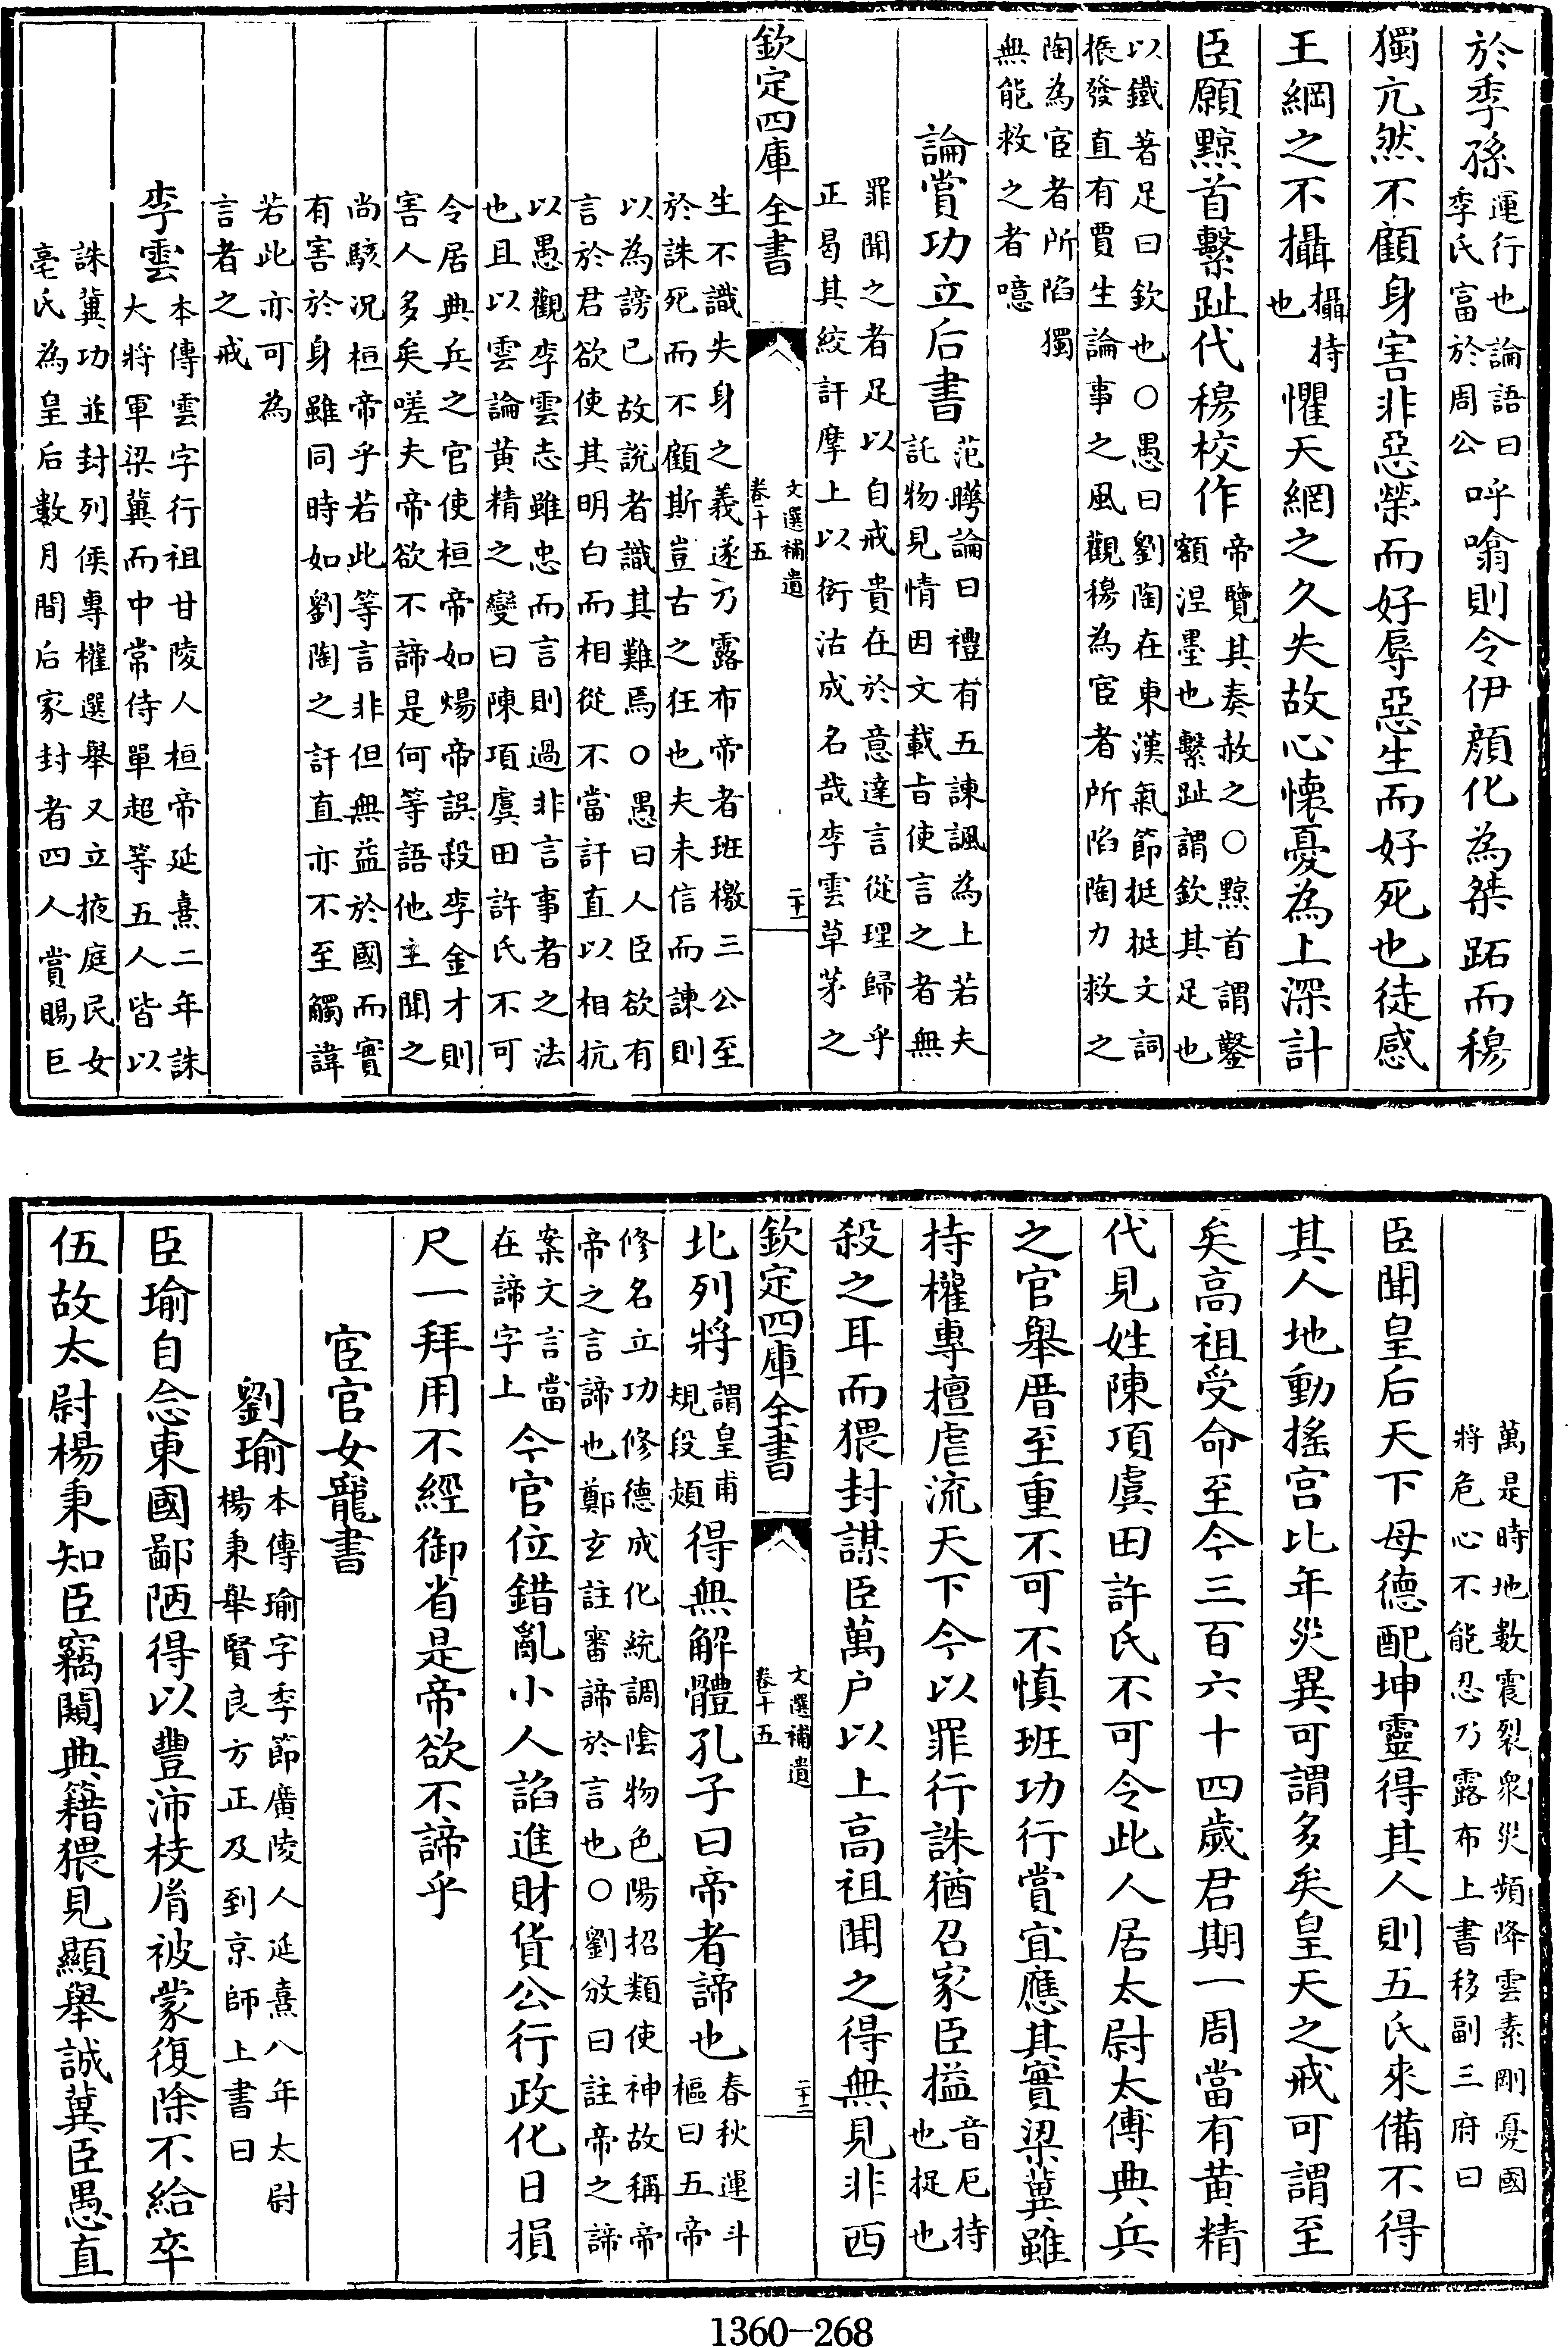 於季孫運行也論語曰季氏富於周公呼噏則令伊顔化為桀跖而穆
獨亢然不顧身害非惡榮而好辱惡生而好死也徒感
王綱之不攝攝持也懼天網之久失故心懷憂為上深計
臣願黥首繫趾代穆校作帝覽其奏赦之○黥首謂鑿額涅墨也繫趾謂釱其足也
以鐵著足曰釱也○愚曰劉陶在東漢氣節挺挺文詞振發直有賈生論事之風觀穆為宦者所陷陶力救之
陶為宦者所陷獨無能救之者噫
論賞功立后書范曄論曰禮有五諫諷為上若夫託物見情因文載㫖使言之者無
罪聞之者足以自戒貴在於意達言從理歸乎正曷其絞訐摩上以衒沽成名哉李雲草茅之
欽定四庫全書 文選補遺 卷十五 二十一
生不識失身之義遂乃露布帝者班檄三公至於誅死而不顧斯豈古之狂也夫未信而諫則
以為謗已故說者識其難焉○愚曰人臣欲有言於君欲使其明白而相從不當訐直以相抗
以愚觀李雲志雖忠而言則過非言事者之法也且以雲論黄精之變曰陳項虞田許氏不可
令居典兵之官使桓帝如煬帝誤殺李金才則害人多矣嗟夫帝欲不諦是何等語他主聞之
尚駭況桓帝乎若此等言非但無益於國而實有害於身雖同時如劉陶之訐直亦不至觸諱
若此亦可為言者之戒
李雲本傳雲字行祖甘陵人桓帝延熹二年誅大將軍梁冀而中常侍單超等五人皆以
誅冀功並封列侯專權選舉又立掖庭民女亳氏為皇后數月間后家封者四人賞賜巨
萬是時地數震裂衆災頻降雲素剛憂國將危心不能忍乃露布上書移副三府曰
臣聞皇后天下母德配坤靈得其人則五氏來備不得
其人地動揺宫比年災異可謂多矣皇天之戒可謂至
矣高祖受命至今三百六十四歲君期一周當有黄精
代見姓陳項虞田許氏不可令此人居太尉太傅典兵
之官舉厝至重不可不慎班功行賞宜應其實梁冀雖
持權專擅虐流天下今以罪行誅猶召家臣搤音厄持也捉也
殺之耳而猥封謀臣萬户以上高祖聞之得無見非西
欽定四庫全書 文選補遺 卷十五 二十二
北列將謂皇甫規段熲得無解體孔子曰帝者諦也春秋運斗樞曰五帝
修名立功修德成化統調陰物色陽招類使神故稱帝帝之言諦也鄭玄註審諦於言也○劉攽曰註帝之諦
案文言當在諦字上今官位錯亂小人諂進財貨公行政化日損
尺一拜用不經御省是帝欲不諦乎
宦官女寵書
劉瑜本傳瑜字季節廣陵人延熹八年太尉楊秉舉賢良方正及到京師上書曰
臣瑜自念東國鄙陋得以豐沛枝胤被蒙復除不給卒
伍故太尉楊秉知臣竊闚典籍猥見顯舉誠冀臣愚直
1360-268